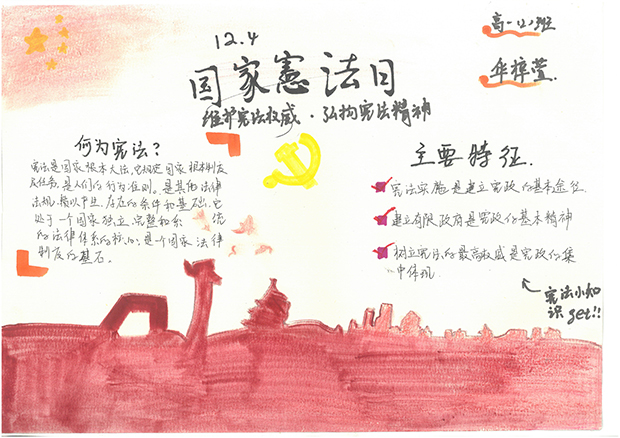 12.4
国家憲法日
维护宪法权威·弘扬宪法精神
高一(2)班
何为宪法?
宪法是国家根本大法,它规定国家根本制度
及任务,是人们的行为准则。是其他法律
法规赖以产生、存在的条件和基础,它
处于一个国家独立、完整和系统
的法律体系的核心,是一个国家法律
制度的基石。
主要特征.
宪法实施是建立宪政的基本途径.
建立有限政府是宪政的基本精神
树立宪法的最高权威是宪政的集
中体现.
宪法小知
识get!!